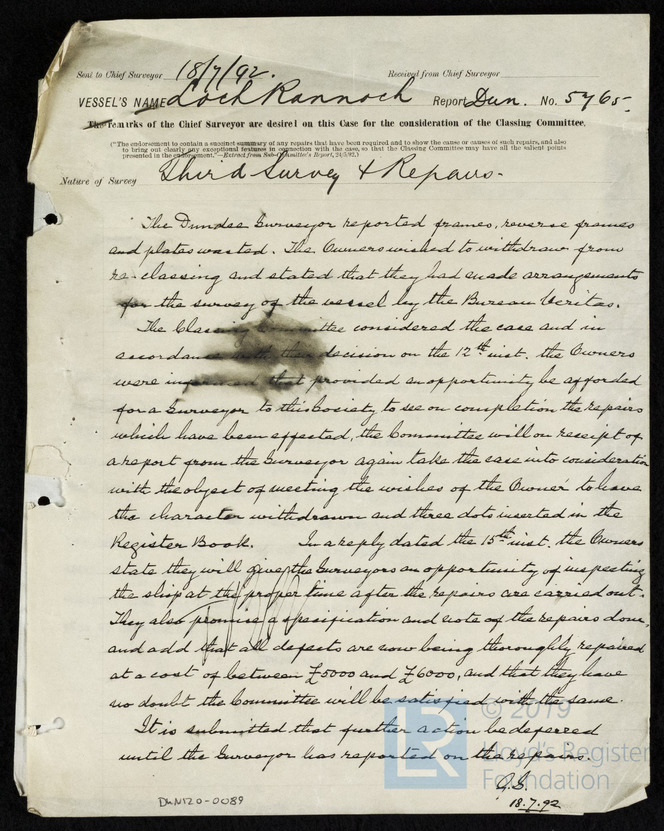 Sent to Chief Surveyor 18/7/92. Received from Chief Surveyor
VESSEL'S NAME Loch Rannoch Report Dun. No. 5765
The remarks of the Chief Surveyor are desired on this Case for the consideration of the Classing Committee.
("The endorsement to contain a succinct summary of any repairs that have been required and to show the cause or causes of such repairs, and also
to bring out clearly any exceptional features in connection with the case, so that the Classing Committee may have all the salient points
presented in the endorsement."—Extract from Sub-Committee's Report, 24/5/92.)
Nature of Survey Third Survey & Repairs.
The Dundee Surveyor reported frames, reverse frames
and plates wasted. The Owners wished to withdraw from
re-classing and stated that they had made arrangements
for the survey of the vessel by the Bureau Veritas.
The Classing Committee considered the case and in
accordance with their decision on the 12th inst. the Owners
were informed that provided an opportunity be afforded
for a Surveyor to this Society to see on completion the repairs
which have been effected, the Committee will on receipt of
a report from the Surveyor again take the case into consideration
with the object of meeting the wishes of the Owner to leave
the character withdrawn and three dots inserted in the
Register Book. In a reply dated the 15th inst. the Owners
state they will give the Surveyors an opportunity of inspecting
the ship at the proper time after the repairs are carried out.
They also promise a specification and note of the repairs done,
and add that all defects are now being thoroughly repaired
at a cost of between £5000 and £6000, and that they have
no doubt the Committee will be satisfied with the same.
It is submitted that further action be deferred
until the Surveyor has reported on the repairs.
18.7.92
DUN120-0089
LR © 2019
Lloyd's Register
Foundation